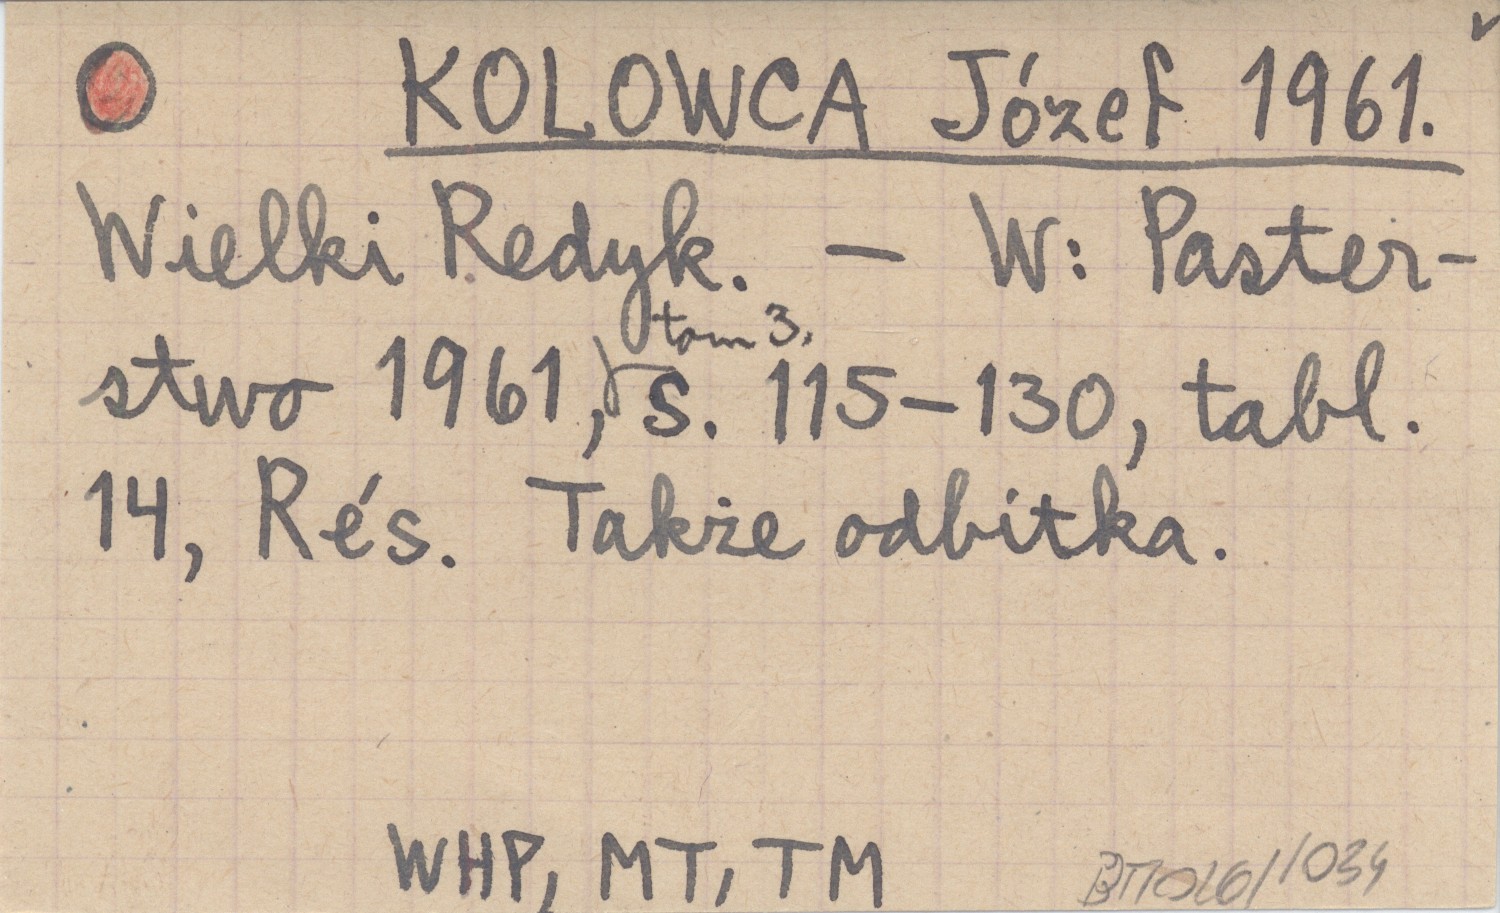 KOLOWCA Józef 1961.
Wielki Redyk. — W: Paster-
tom 3.
stwo 1961, s. 115-130, tabl.
14, Rés. Także odbitka.
WHP, MT, TM